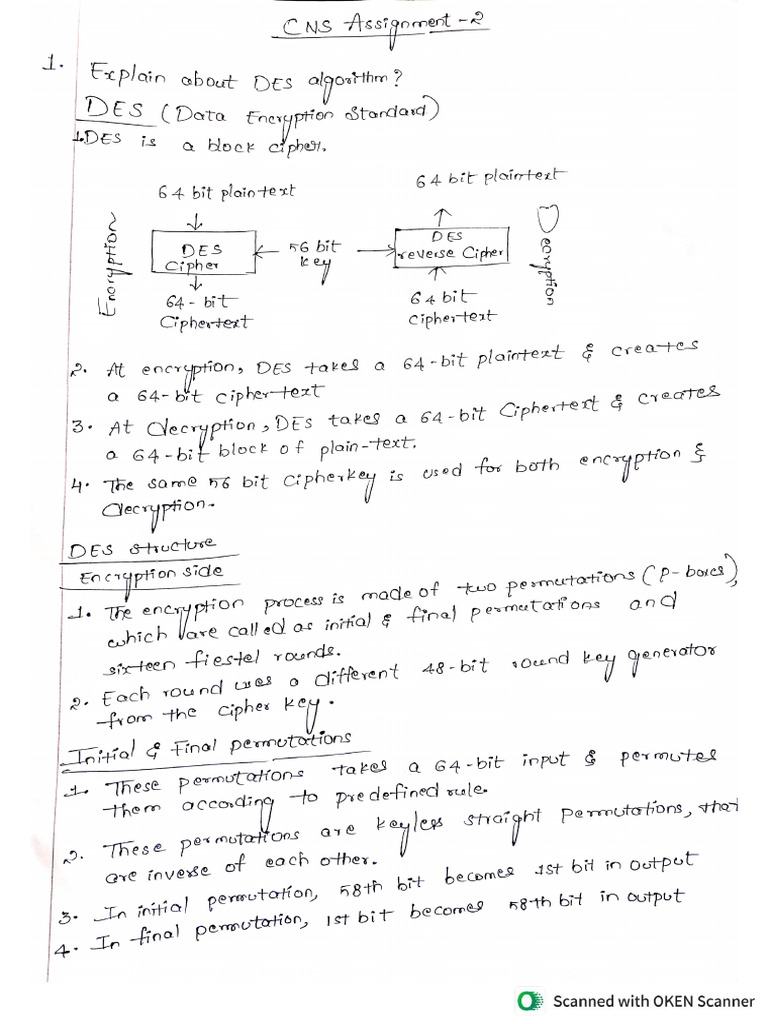 CNS Assignment-2
1. Explain about DES algorithm?
DES (Data Encryption Standard)
1. DES is a block cipher.
64 bit plaintext
64 bit plaintext
Encryption
DES
Cipher
56 bit
key
DES
reverse Cipher
Decryption
64-bit
Ciphertext
64 bit
ciphertext
2. At encryption, DES takes a 64-bit plaintext & creates
a 64-bit ciphertext
3. At decryption, DES takes a 64-bit Ciphertext & creates
a 64-bit block of plain-text.
4. The same 56 bit cipherkey is used for both encryption &
decryption.
DES structure
Encryption side
1. The encryption process is made of two permutations (p-boxes),
which are called as initial & final permutations and
sixteen fiestel rounds.
2. Each round uses a different 48-bit round key generator
from the cipher key.
Initial & Final permutations
1. These permutations takes a 64-bit input & permutes
them according to predefined rule.
2. These permutations are keyless straight permutations, that
are inverse of each other.
3. In initial permutation, 58th bit becomes 1st bit in output
4. In final permutation, 1st bit becomes 58th bit in output
Scanned with OKEN Scanner